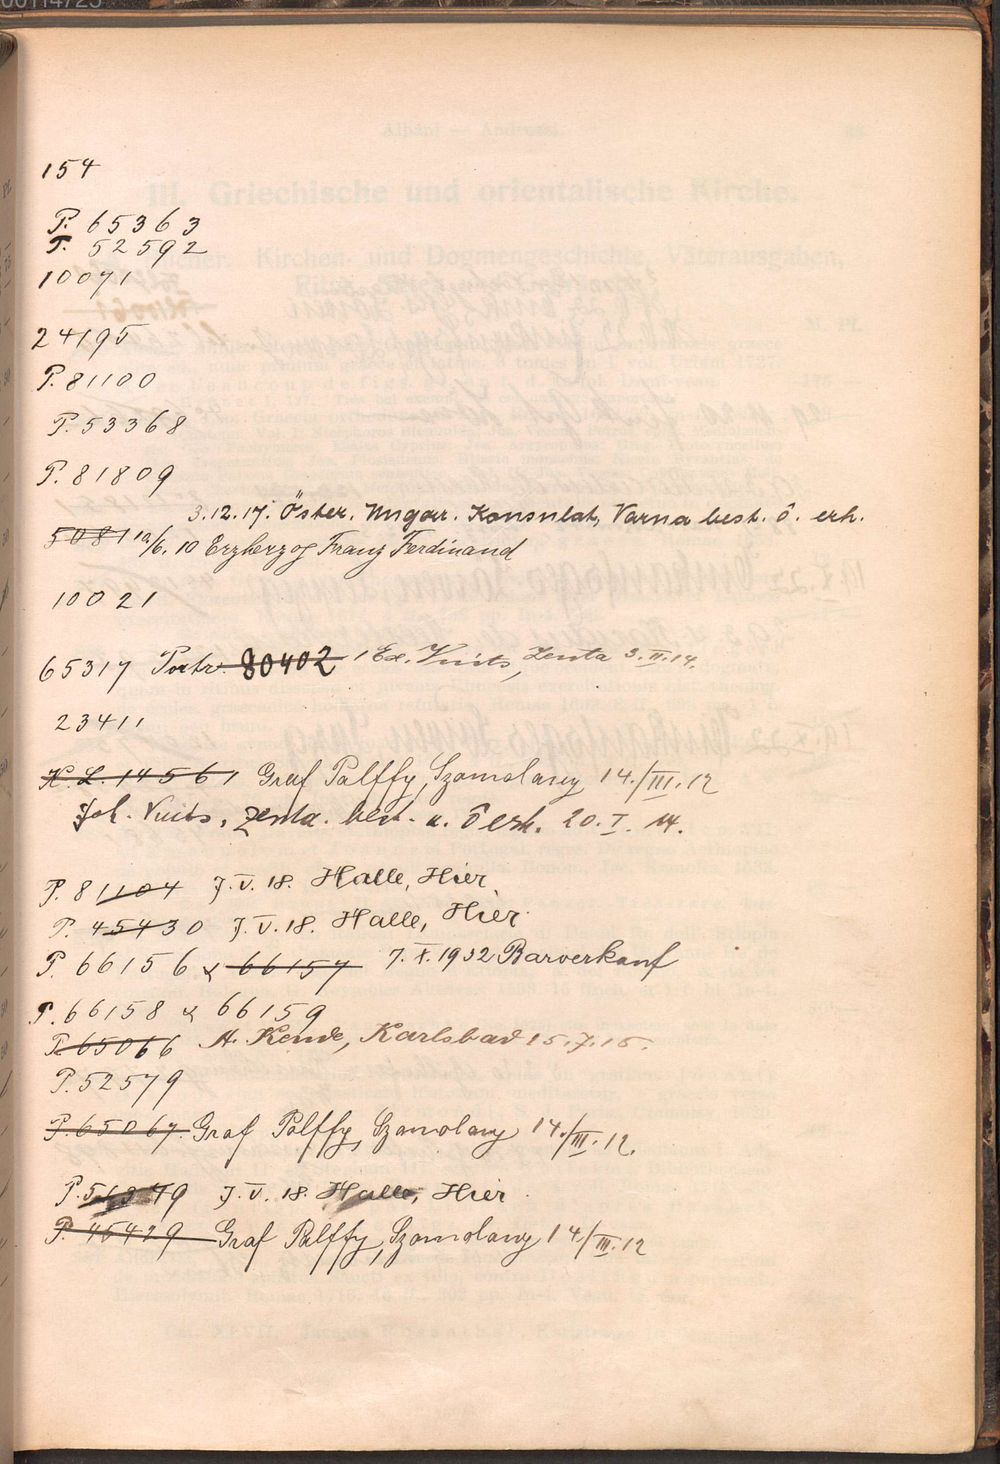 154
P. 65363
P. 52592
10071
24195
P. 81100
P. 53368
P. 81809
3.12.17. Öster. Ungar. Konsulat, Varna best. ö. erh.
5081 10/6. 10 Erzherzog Franz Ferdinand
10021
65317 Portr. 80402 1 Ex. Vuits, Zenta 3.II.14.
23411
K. L. 14561 Graf Pálffy, Szomolany 14./III.12
Joh. Vuits, Zenta. best. u. ö erh. 20. I. 14.
P. 81104 7.V.18. Halle, Hier
P. 45430 7.V.18. Halle, Hier
P. 66156 & 66157 7.X.1932 Barverkauf
P. 66158 & 66159
P. 65066 A. Kende, Karlsbad 15.7.16.
P. 52579
P. 65067. Graf Pálffy, Szomolany 14./III.12.
P. 51349 7.V.18. Halle, Hier
P. 45429 Graf Pálffy, Szomolany 14/III.12